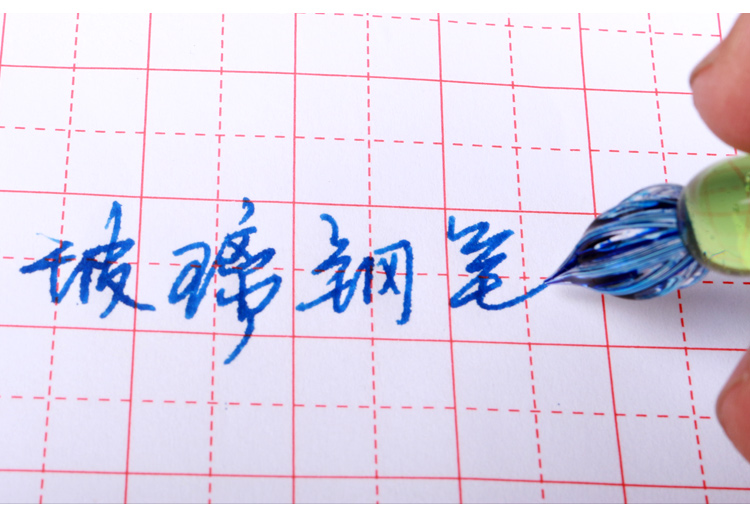 玻璃钢笔